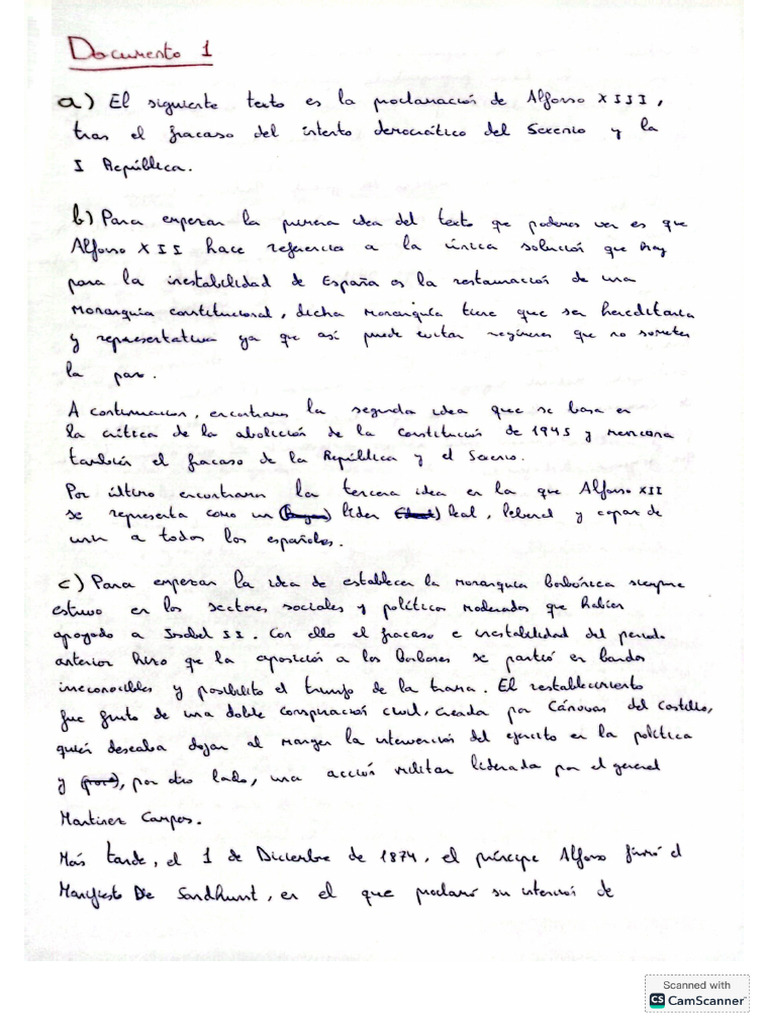 Documento 1
a) El siguiente texto es la proclamación de Alfonso XIII,
tras el fracaso del intento democrático del Sexenio y la
I República.
b) Para empezar la primera idea del texto que podemos ver es que
Alfonso XII hace referencia a la única solución que hay
para la inestabilidad de España es la restauración de una
monarquía constitucional, dicha monarquía tiene que ser hereditaria
y representativa ya que así puede evitar regímenes que no someten
la paz.
A continuacion, encontramos la segunda idea que se basa en
la crítica de la abolición de la Constitución de 1945 y menciona
también el fracaso de la República y el Sexenio.
Por último encontramos la tercera idea en la que Alfonso XII
se representa como un líder leal, liberal y capaz de
unir a todos los españoles.
c) Para empezar la idea de establecer la monarquía borbónica siempre
estuvo en los sectores sociales y políticos moderados que habían
apoyado a Isabel II. Con ello el fracaso e inestabilidad del periodo
anterior hizo que la oposición a los borbones se partió en bandos
irreconocibles y posibilito el triunfo de la trama. El restablecimiento
fue fruto de una doble conspiración civil, creada por Cánovas del Castillo,
quien deseaba dejar al margen la intervención del ejercito en la política
y, por otro lado, una acción militar liderada por el general
Martinez Campos.
Más tarde, el 1 de Diciembre de 1874, el príncipe Alfonso firmó el
Manifiesto De Sandhurst, en el que proclamó su intención de
Scanned with
CS CamScanner